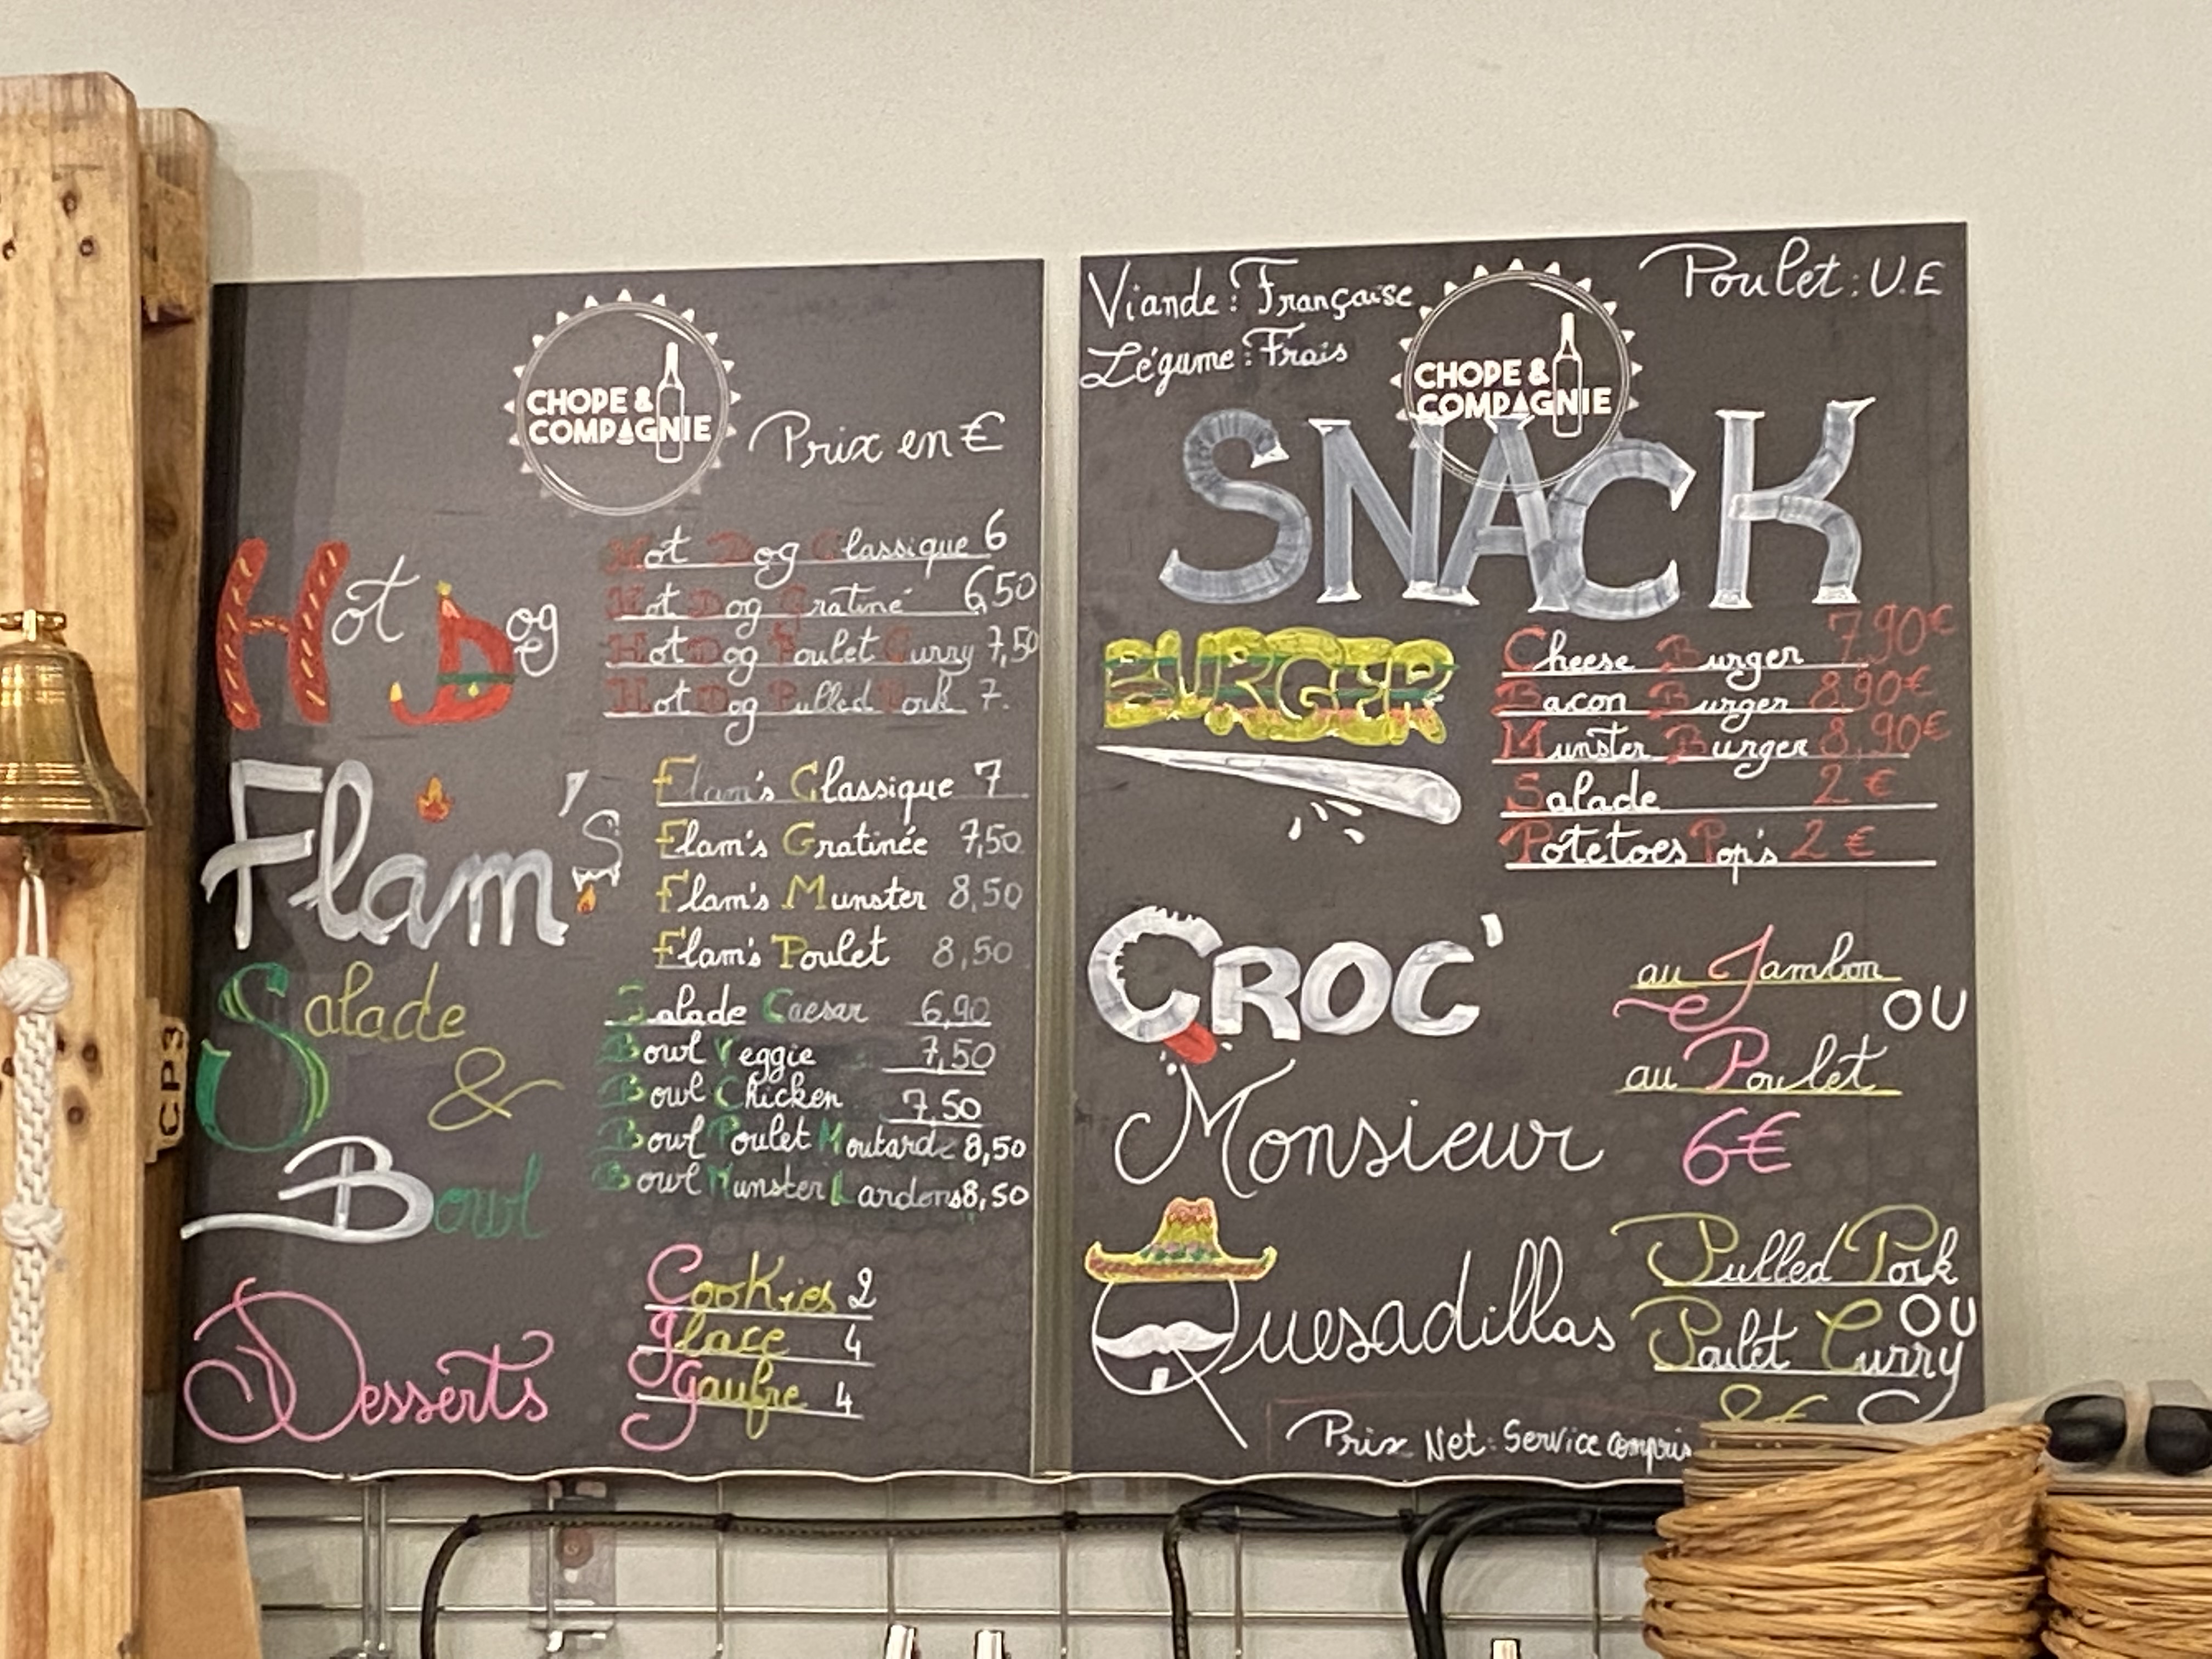 CHOPE &
COMPAGNIE
Prix en €
Hot Dog
Hot Dog Classique 6
Hot Dog Gratiné 6,50
Hot Dog Poulet Curry 7,50
Hot Dog Pulled Pork 7.
Flam's
Flam's Classique 7
Flam's Gratinée 7,50
Flam's Munster 8,50
Flam's Poulet 8,50
Salade
&
Bowl
Salade Caesar 6,90
Bowl Veggie 7,50
Bowl Chicken 7,50
Bowl Poulet Moutarde 8,50
Bowl Munster Lardons 8,50
Desserts
Cookies 2
glace 4
gaufre 4
Viande : Française
Légume : Frais
CHOPE &
COMPAGNIE
Poulet : U.E
SNACK
BURGER
Cheese Burger 7,90€
Bacon Burger 8,90€
Munster Burger 8,90€
Salade 2 €
Potetoes Pop's 2 €
CROC'
Monsieur
au Jambon
OU
au Poulet
6€
Quesadillas
Pulled Pork
OU
Poulet Curry
8€
Prix Net : Service compris
CP3